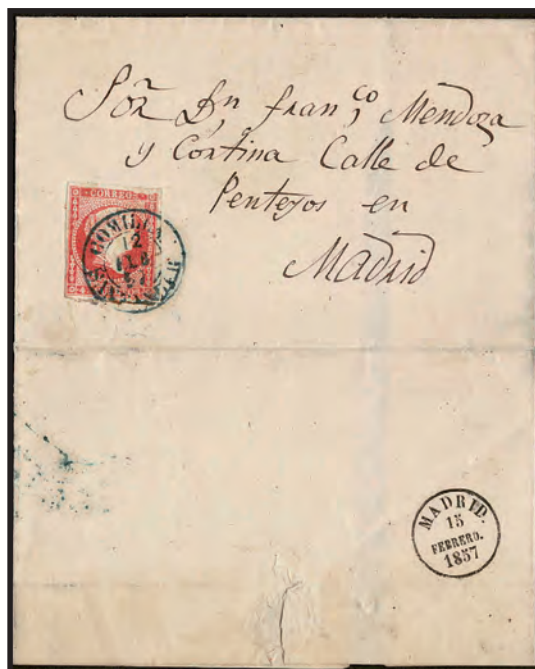 Sor Dn franco Mendoza
y Cortina Calle de
Pentejos en
Madrid
CORREOS
COMILLAS
12
FEB
57
SANTANDER
MADRID.
15
FEBRERO.
1857